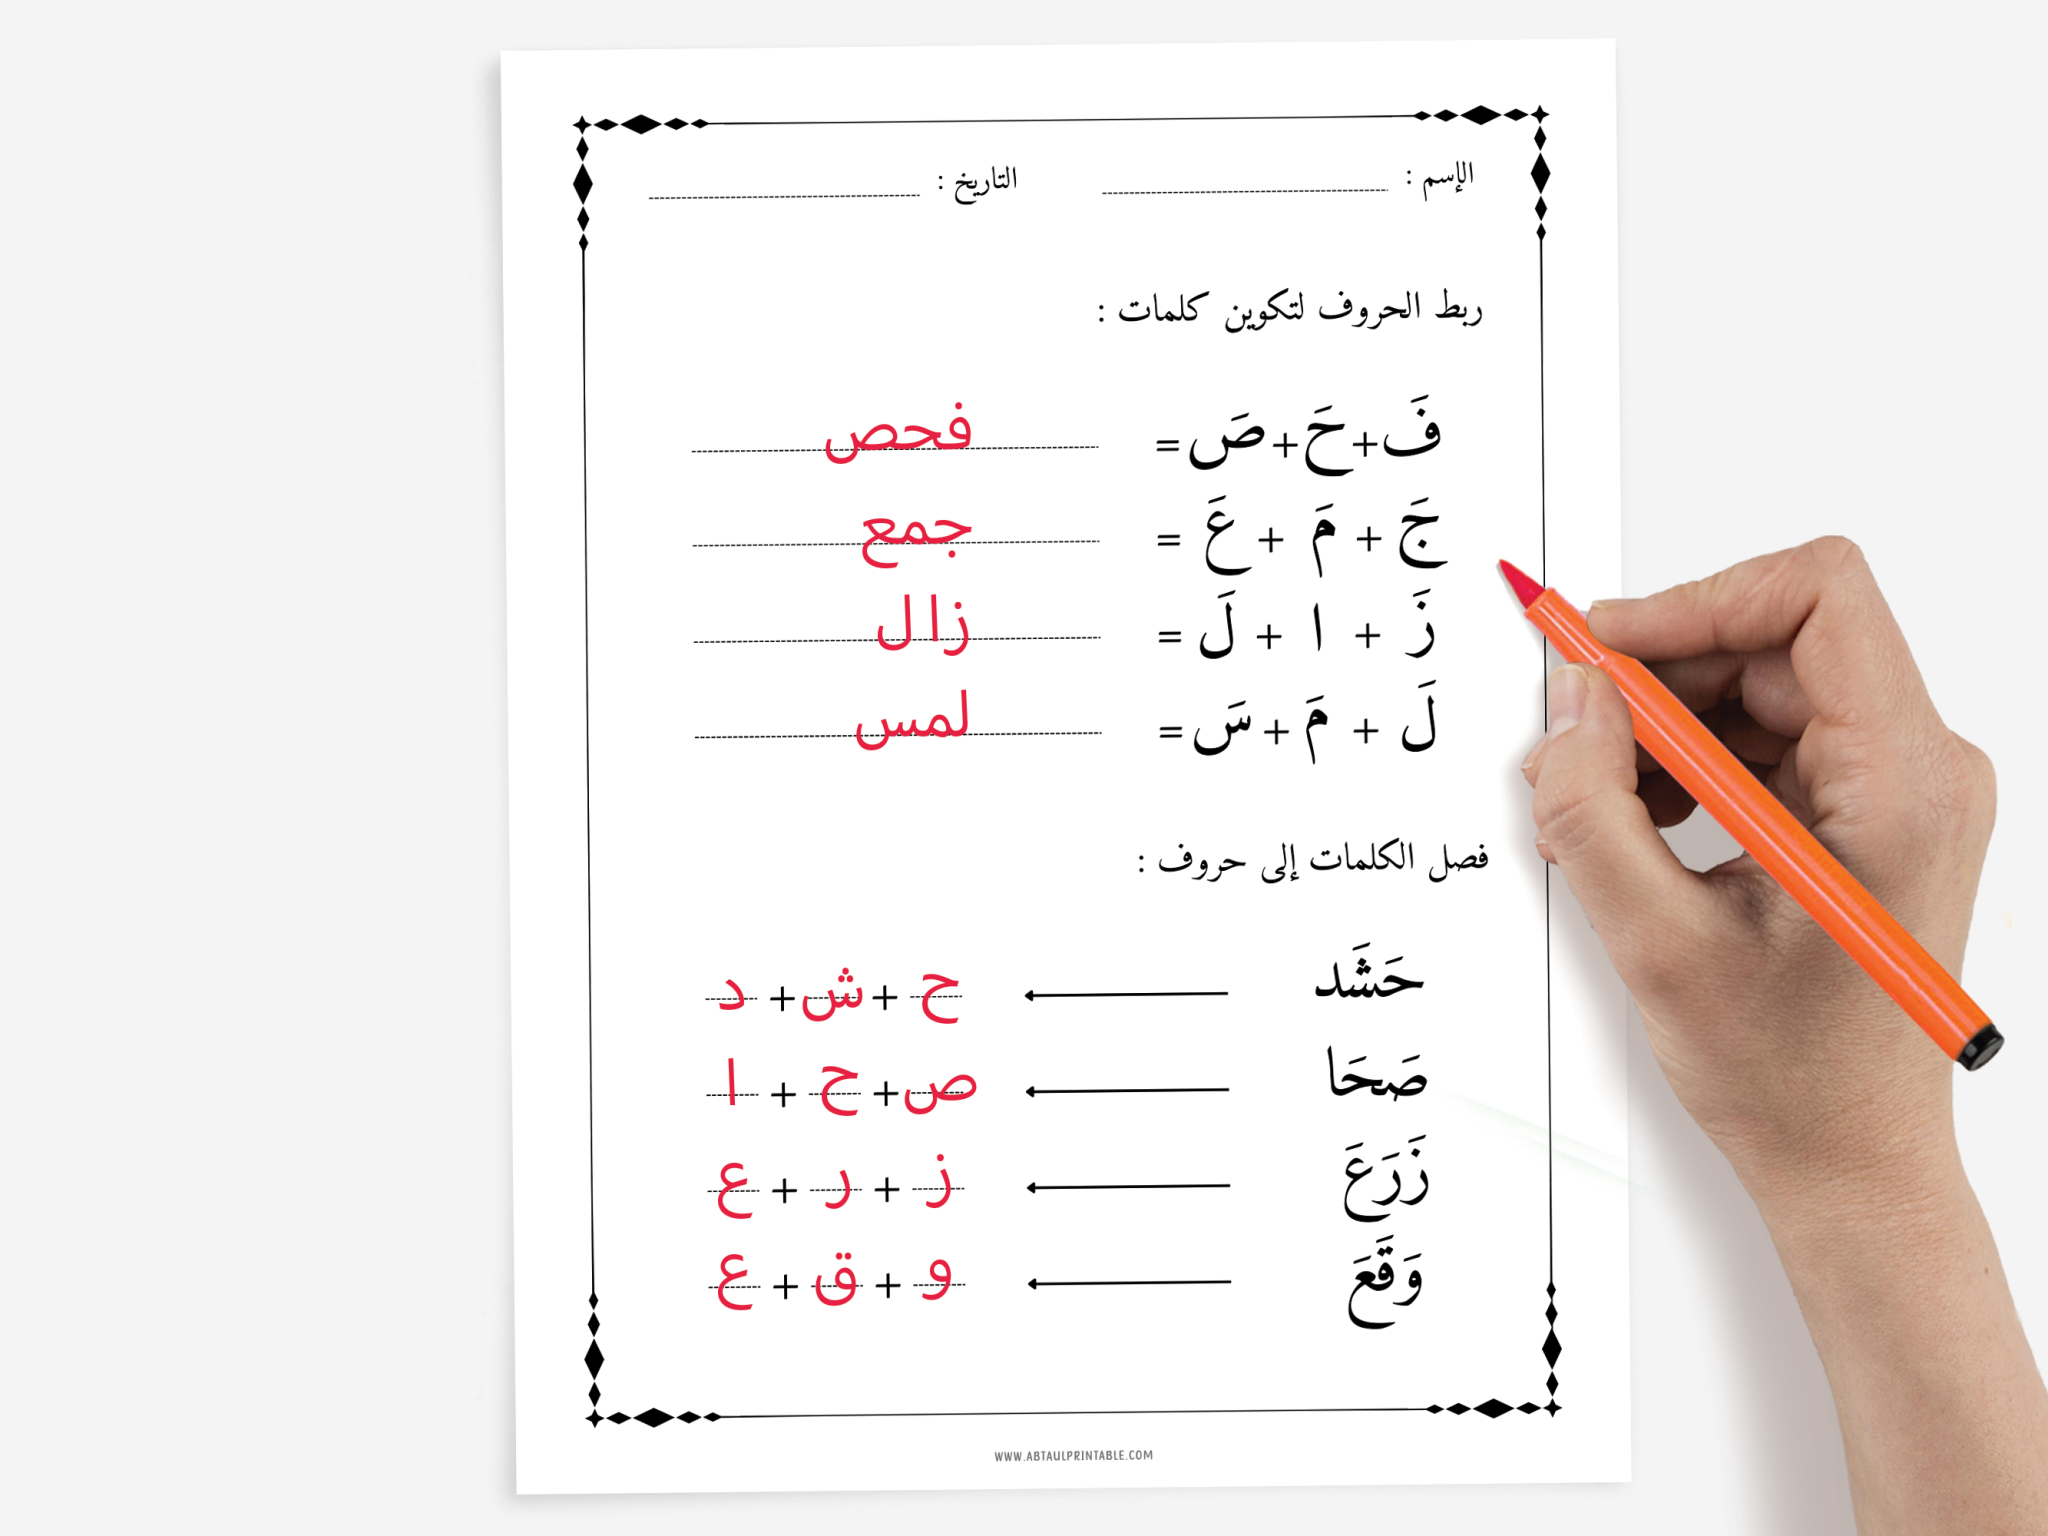 الإسم : التاريخ :
ربط الحروف لتكوين كلمات :
فَ+حَ+صَ= فحص
جَ + مَ + عَ = جمع
زَ + ا + لَ = زال
لَ + مَ + سَ= لمس
فصل الكلمات إلى حروف :
حَشَد ح + ش + د
صَحَا ص + ح + ا
زَرَعَ ز + ر + ع
وَقَعَ و + ق + ع
WWW.ABTAULPRINTABLE.COM